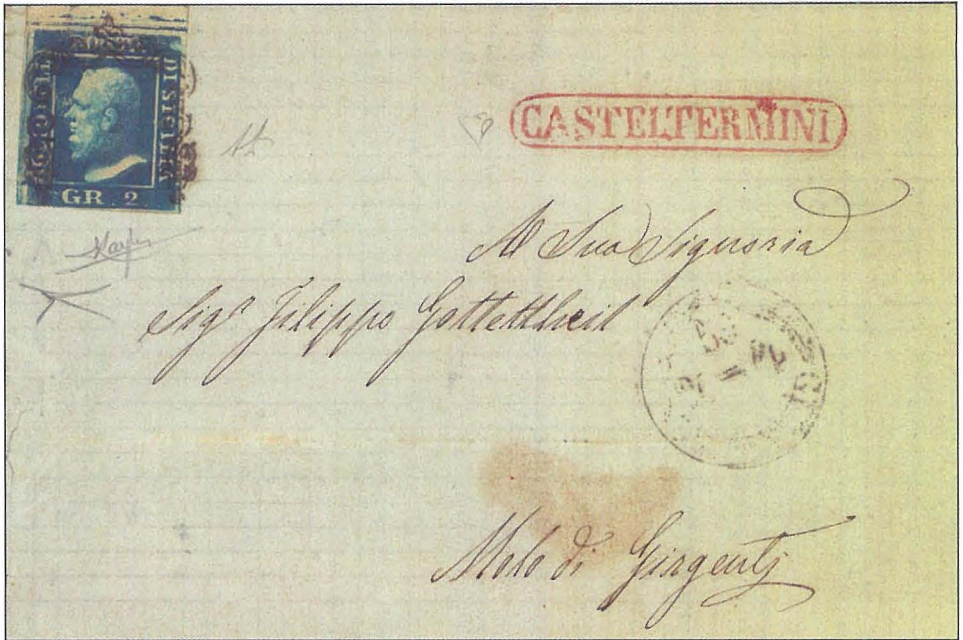 DI SICILIA
GR 2
CASTELTERMINI
A Sua Signoria
Sigr Filippo Gottettheil
Molo di Girgentj